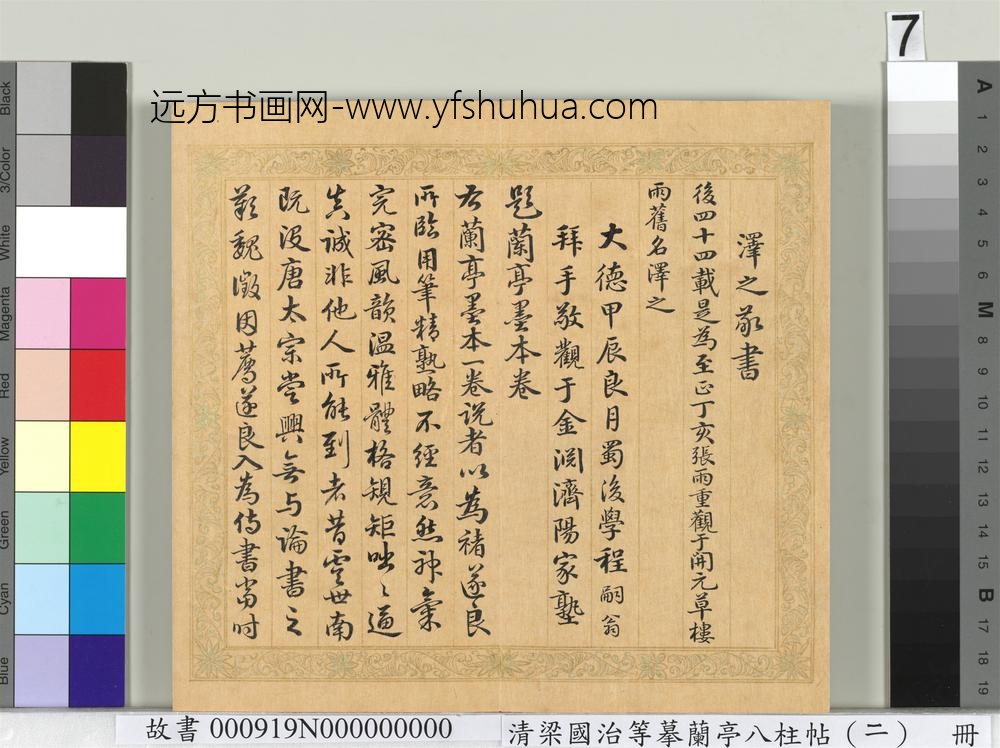 7
远方书画网-www.yfshuhua.com
澤之敬書
後四十四載是為至正丁亥張雨重觀于開元草樓
雨舊名澤之
大德甲辰良月蜀後學程嗣翁
拜手敬觀于金淵濟陽家塾
題蘭亭墨本卷
右蘭亭墨本一卷説者以為褚遂良
所臨用筆精熟略不經意然神氣
完密風韻温雅體格規矩咄咄逼
真誠非他人所能到者昔虞世南
既没唐太宗嘗興無与論書之
歎魏徵因薦遂良入為侍書當时
Black
3/Color
White
Magenta
Red
Yellow
Green
Cyan
Blue
A
1
2
3
4
5
6
M
8
9
10
11
12
13
14
15
B
17
18
19
故書 000919N000000000
清梁國治等摹蘭亭八柱帖（二） 冊